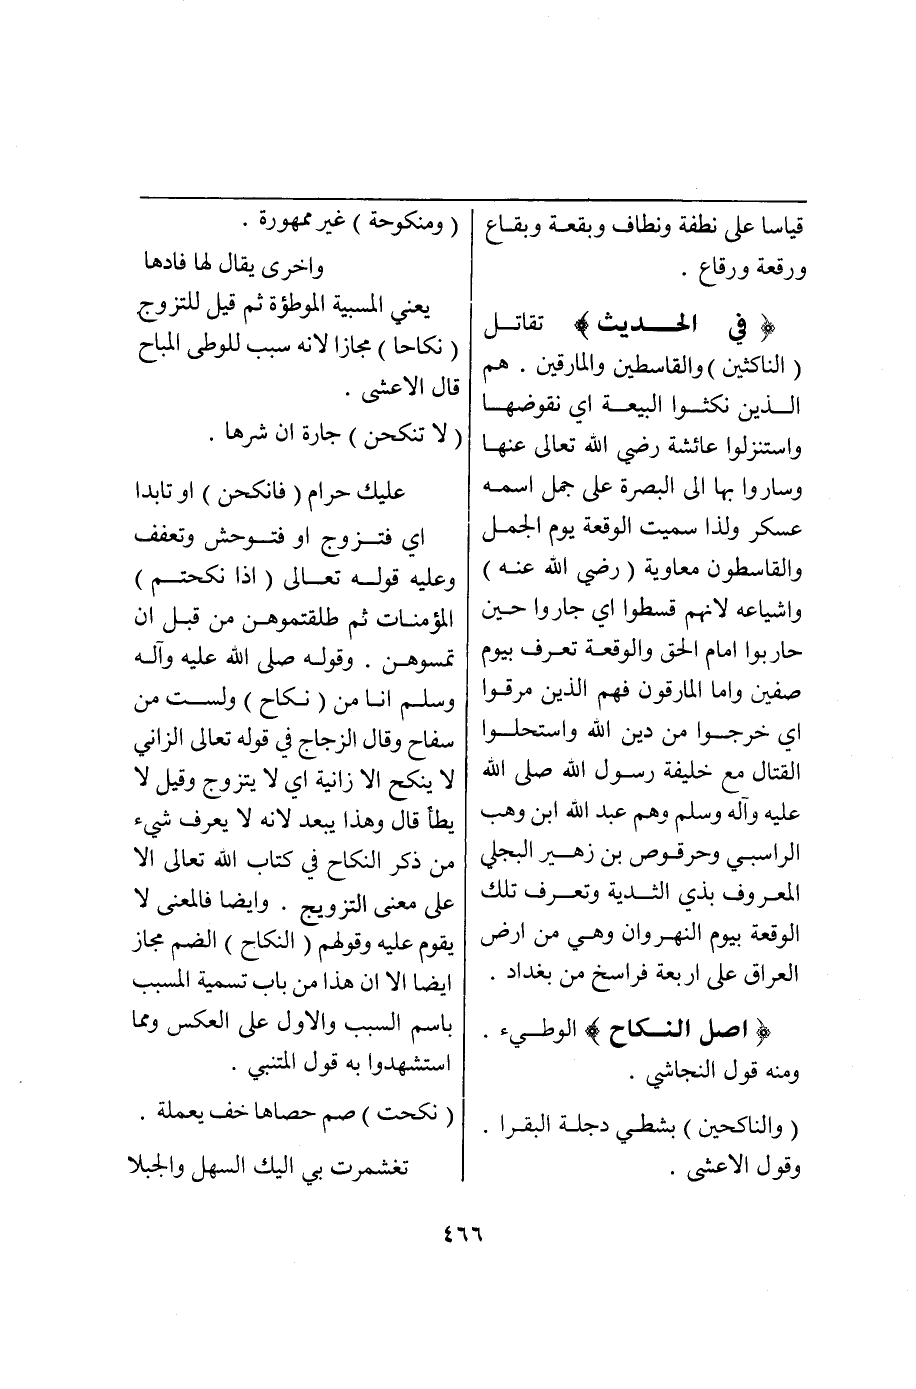 قياسا على نطفة ونطاف وبقعة وبقاع
ورقعة ورقاع .
﴿ في الحديث ﴾ تقاتل
( الناكثين ) والقاسطين والمارقين . هم
الذين نكثوا البيعة اي نقوضها
واستنزلوا عائشة رضي الله تعالى عنها
وساروا بها الى البصرة على جمل اسمه
عسكر ولذا سميت الوقعة يوم الجمل
والقاسطون معاوية ( رضي الله عنه )
واشياعه لانهم قسطوا اي جاروا حين
حاربوا امام الحق والوقعة تعرف بيوم
صفين واما المارقون فهم الذين مرقوا
اي خرجوا من دين الله واستحلوا
القتال مع خليفة رسول الله صلى الله
عليه وآله وسلم وهم عبد الله ابن وهب
الراسبي وحرقوص بن زهير البجلي
المعروف بذي الثدية وتعرف تلك
الوقعة بيوم النهروان وهي من ارض
العراق على اربعة فراسخ من بغداد .
﴿ اصل النكاح ﴾ الوطيء .
ومنه قول النجاشي .
( والناكحين ) بشطي دجلة البقرا .
وقول الاعشى .
( ومنكوحة ) غير ممهورة .
واخرى يقال لها فادها
يعني المسبية الموطؤة ثم قيل للتزوج
( نكاحا ) مجازا لانه سبب للوطى المباح
قال الاعشى .
( لا تنكحن ) جارة ان شرها .
عليك حرام ( فانكحن ) او تابدا
اي فتزوج او فتوحش وتعفف
وعليه قوله تعالى ( اذا نكحتم )
المؤمنات ثم طلقتموهن من قبل ان
تمسوهن . وقوله صلى الله عليه وآله
وسلم انا من ( نكاح ) ولست من
سفاح وقال الزجاج في قوله تعالى الزاني
لا ينكح الا زانية اي لا يتزوج وقيل لا
يطأ قال وهذا يبعد لانه لا يعرف شيء
من ذكر النكاح في كتاب الله تعالى الا
على معنى التزويج . وايضا فالمعنى لا
يقوم عليه وقولهم ( النكاح ) الضم مجاز
ايضا الا ان هذا من باب تسمية المسبب
باسم السبب والاول على العكس ومما
استشهدوا به قول المتنبي .
( نكحت ) صم حصاها خف يعملة .
تغشمرت بي اليك السهل والجبلا
٤٦٦